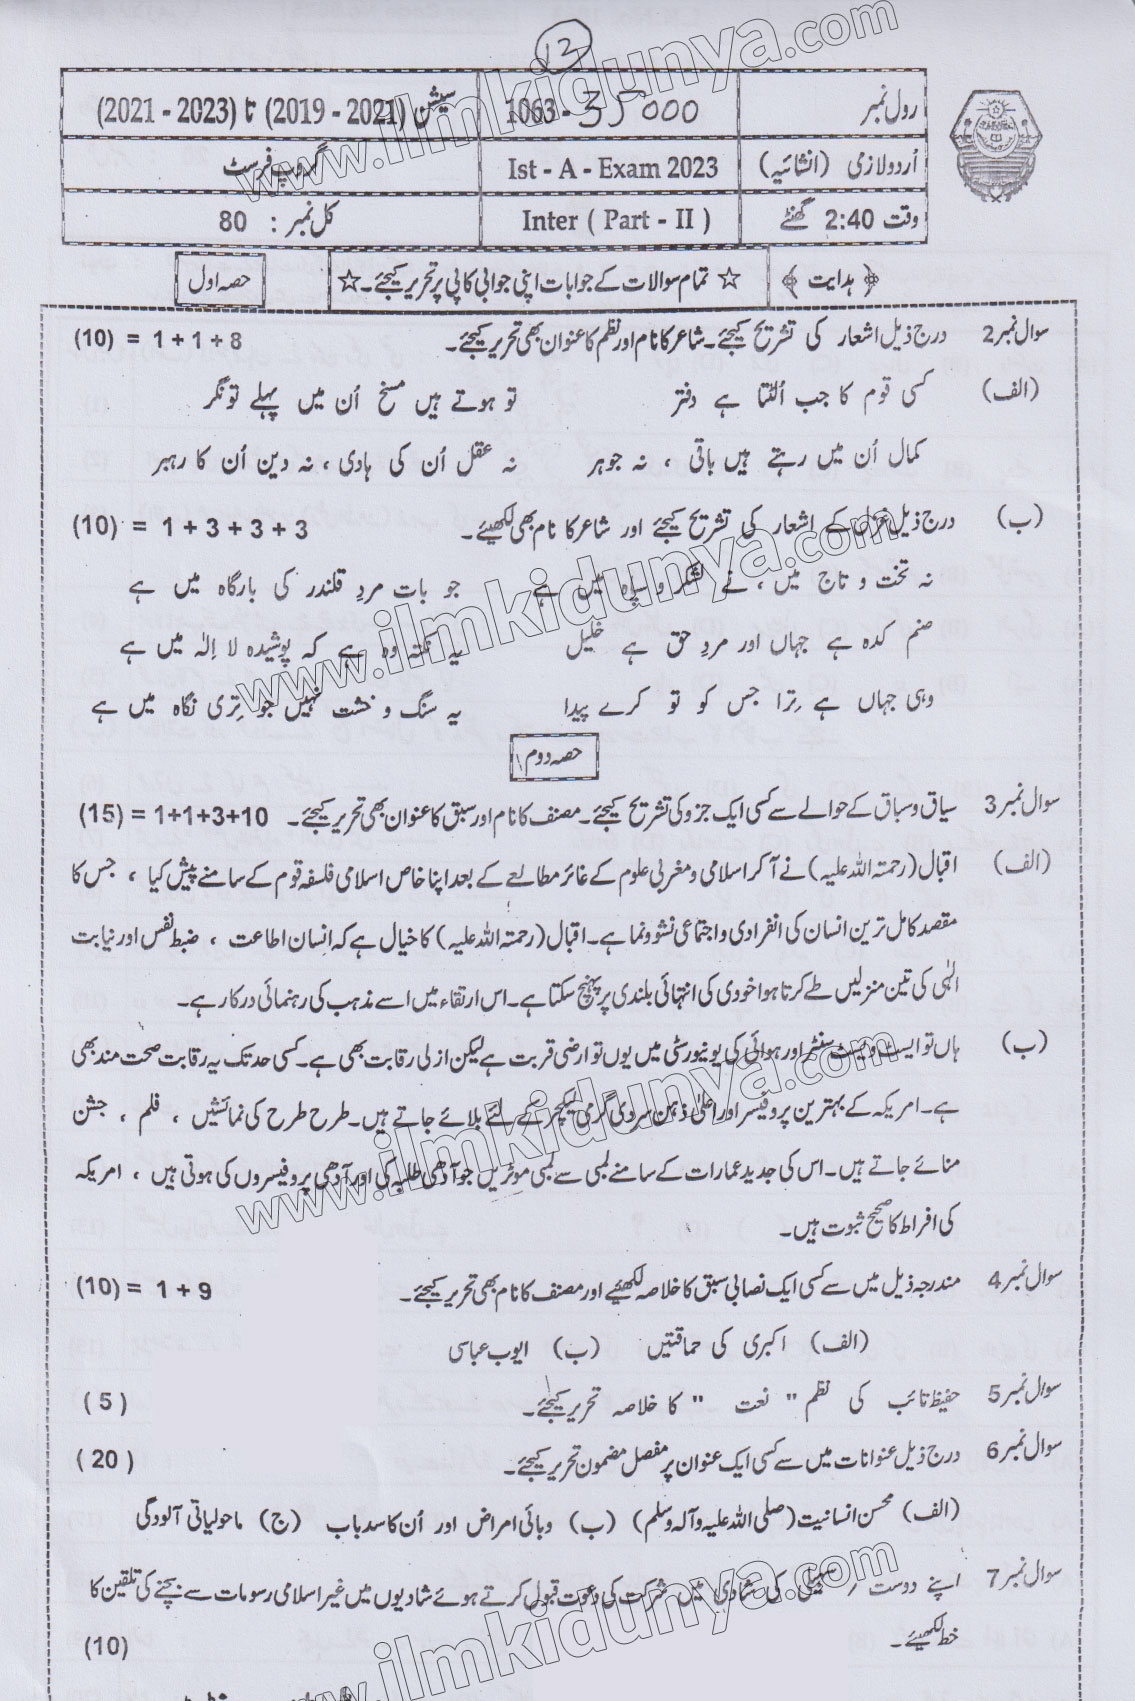 12
رول نمبر
1063 - 35000
سیشن (2021 - 2019) تا (2023 - 2021)
اُردو لازمی (انشائیہ)
Ist - A - Exam 2023
گروپ فرسٹ
وقت 2:40 گھنٹے
Inter ( Part - II )
کل نمبر : 80
﴿ ہدایت ﴾ ☆ تمام سوالات کے جوابات اپنی جوابی کاپی پر تحریر کیجئے۔ ☆
حصہ اول
سوال نمبر 2 درج ذیل اشعار کی تشریح کیجئے۔ شاعر کا نام اور نظم کا عنوان بھی تحریر کیجئے۔ (10) = 1 + 1 + 8
(الف) کسی قوم کا جب اُلٹتا ہے دفتر تو ہوتے ہیں مسخ اُن میں پہلے تونگر
کمال اُن میں رہتے ہیں باقی ، نہ جوہر نہ عقل اُن کی ہادی ، نہ دین اُن کا رہبر
(ب) درج ذیل غزل کے اشعار کی تشریح کیجئے اور شاعر کا نام بھی لکھیئے۔ (10) = 1 + 3 + 3 + 3
نہ تخت و تاج میں ، نے لشکر و سپاہ میں ہے جو بات مردِ قلندر کی بارگاہ میں ہے
صنم کدہ ہے جہاں اور مردِ حق ہے خلیل یہ نکتہ وہ ہے کہ پوشیدہ لا اِلہٰ میں ہے
وہی جہاں ہے تِرا جس کو تو کرے پیدا یہ سنگ و خشت نہیں جو تِری نگاہ میں ہے
حصہ دوم
سوال نمبر 3 سیاق و سباق کے حوالے سے کسی ایک جزو کی تشریح کیجئے۔ مصنف کا نام اور سبق کا عنوان بھی تحریر کیجئے۔ (15) = 1+1+3+10
(الف) اقبال (رحمتہ اللہ علیہ) نے آ کر اسلامی و مغربی علوم کے غائر مطالعے کے بعد اپنا خاص اسلامی فلسفہ قوم کے سامنے پیش کیا ، جس کا
مقصد کامل ترین انسان کی انفرادی و اجتماعی نشوونما ہے۔ اقبال (رحمتہ اللہ علیہ) کا خیال ہے کہ اِنسان اطاعت ، ضبط نفس اور نیابت
الٰہی کی تین منزلیں طے کرتا ہوا خودی کی انتہائی بلندی پر پہنچ سکتا ہے۔ اس ارتقاء میں اسے مذہب کی رہنمائی درکار ہے۔
(ب) ہاں تو ایسٹ ویسٹ سنٹر اور ہوائی کی یونیورسٹی میں یوں تو ارضی قربت ہے لیکن ازلی رقابت بھی ہے۔ کسی حد تک یہ رقابت صحت مند بھی
ہے۔ امریکہ کے بہترین پروفیسر اور اعلیٰ ذہن سردی گرمی لیکچر کے لئے بلائے جاتے ہیں۔ طرح طرح کی نمائشیں ، فلم ، جشن
منائے جاتے ہیں۔ اس کی جدید عمارات کے سامنے لمبی سے لمبی موٹریں جو آدھی طلبہ کی اور آدھی پروفیسروں کی ہوتی ہیں ، امریکہ
کی افراط کا صحیح ثبوت ہیں۔
سوال نمبر 4 مندرجہ ذیل میں سے کسی ایک نصابی سبق کا خلاصہ لکھئیے اور مصنف کا نام بھی تحریر کیجئے۔ (10) = 1 + 9
(الف) اکبری کی حماقتیں (ب) ایوب عباسی
سوال نمبر 5 حفیظ تائب کی نظم " نعت " کا خلاصہ تحریر کیجئے۔ (5)
سوال نمبر 6 درج ذیل عنوانات میں سے کسی ایک عنوان پر مفصل مضمون تحریر کیجئے۔ (20)
(الف) محسن انسانیت (صلی اللہ علیہ وآلہ وسلم) (ب) وبائی امراض اور اُن کا سدباب (ج) ماحولیاتی آلودگی
سوال نمبر 7 اپنے دوست / سہیلی کی شادی میں شرکت کی دعوت قبول کرتے ہوئے شادیوں میں غیر اسلامی رسومات سے بچنے کی تلقین کا
خط لکھیئے۔ (10)
www.ilmkidunya.com
www.ilmkidunya.com
www.ilmkidunya.com
www.ilmkidunya.com